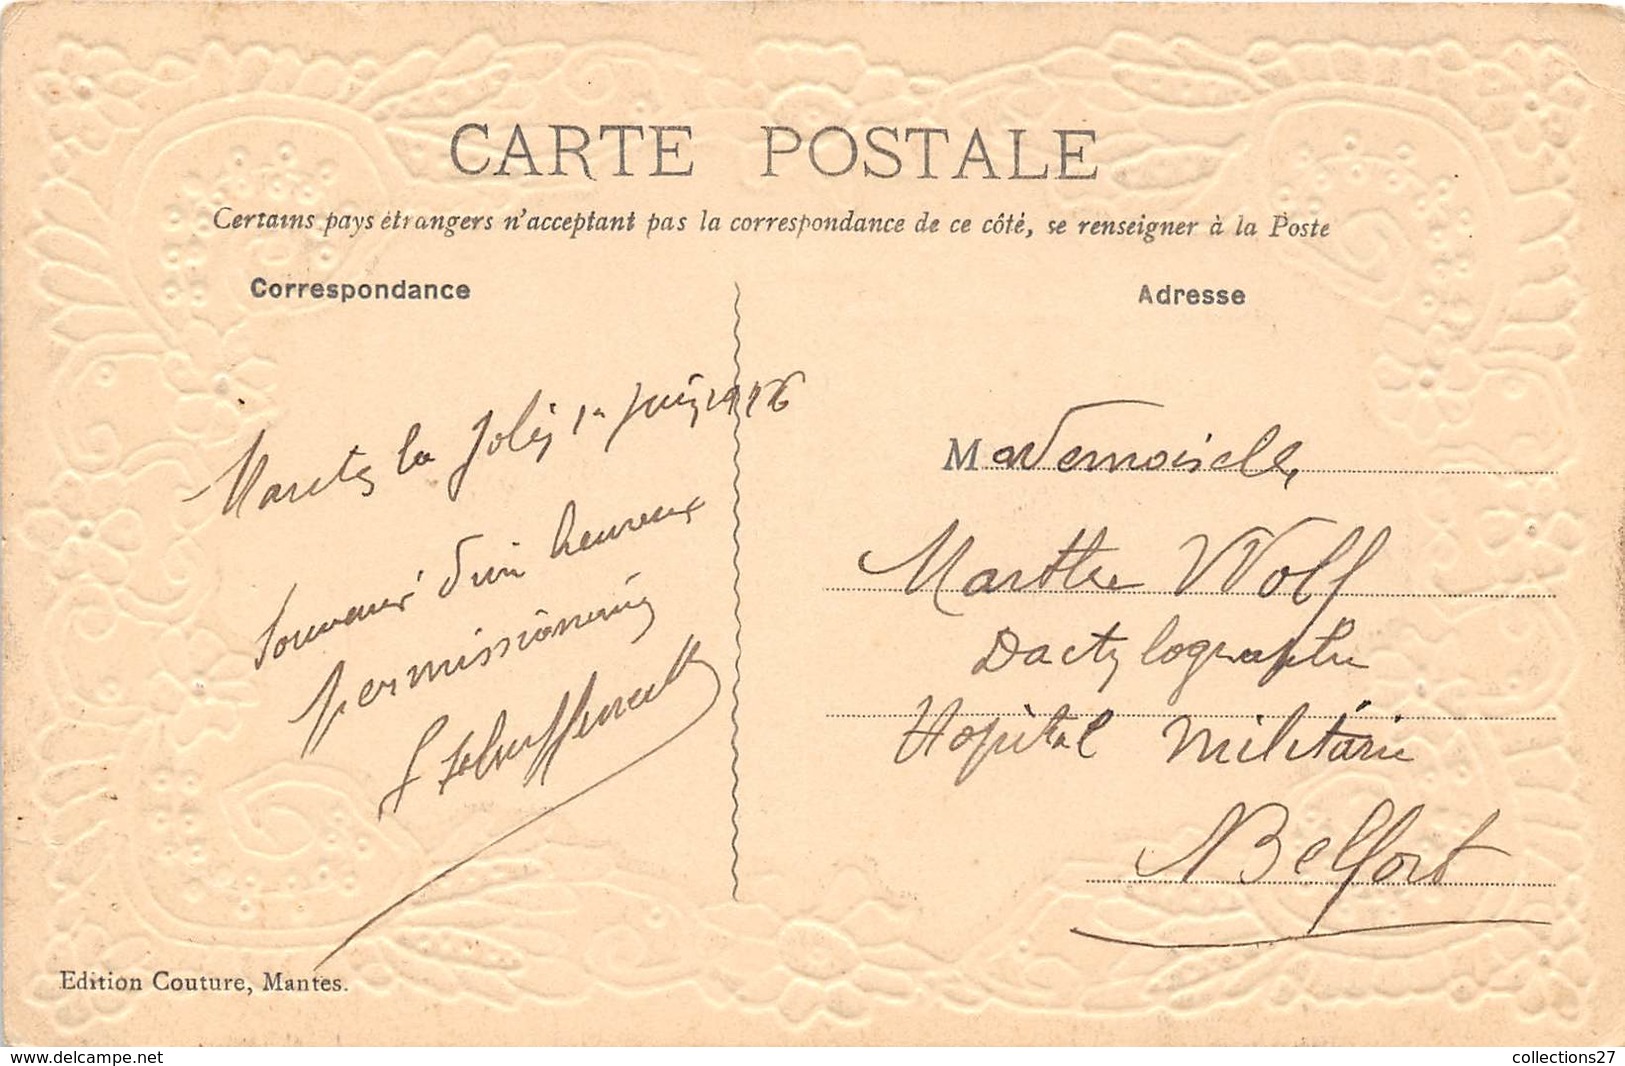 CARTE POSTALE
Certains pays étrangers n'acceptant pas la correspondance de ce côté, se renseigner à la Poste
Correspondance
Adresse
Mantes la Jolie 1er Juin 1916
Souvenir d'un heureux
permissionnaire
Mademoiselle
Marthe Wolf
Dactylographe
Hopital Militaire
Belfort
Edition Couture, Mantes.
www.delcampe.net
collections27